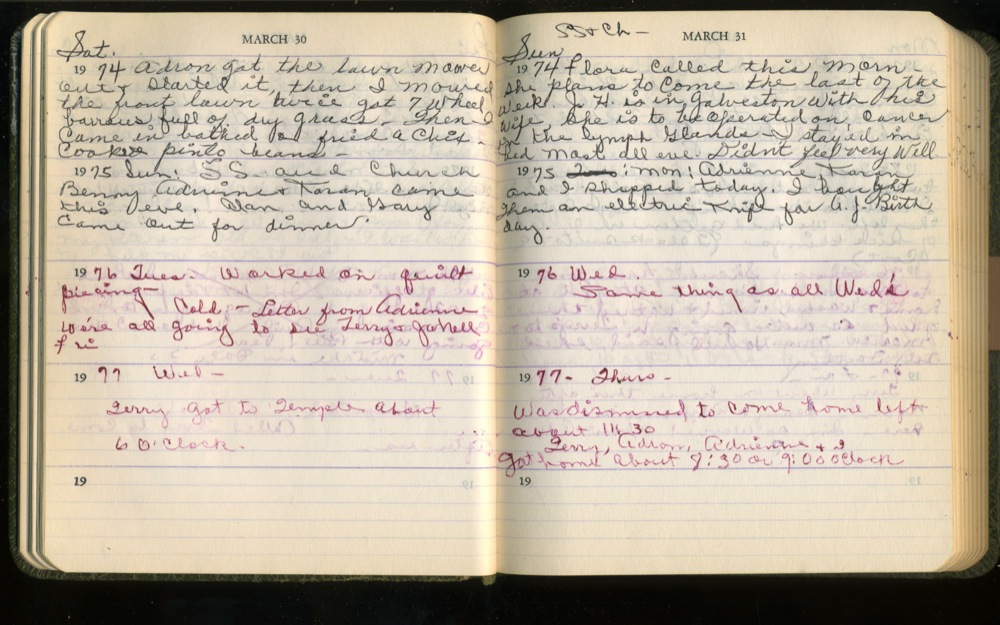 MARCH 30
Sat.
1974 Adron got the lawn mower
out & started it, then I mowed
the front lawn twice got 7 wheel
barrous full of dry grass. Then I
came in bathed & fried a Chix.
Cooked pinto beans -
1975 Sun: S.S. and Church
Benny Adrienne & Karan came
this eve. Clan and Gary
came out for dinner
1976 Tues. Worked on quilt
piecing -
Cold - Letter from Adrienne
we're all going to see Terry & Jo Nell
Fri
1977 Wed -
Terry got to Temple about
6 O'Clock.
19
SS & Ch -
MARCH 31
Sun
1974 Flora called this morn -
She plans to come the last of the
week. J. H. is in Galveston with his
wife. She is to be operated on, cancer
in the lymph glands - I stayed in
bed most all eve. Didn't feel very well
1975 mon: Adrienne Karin
and I shopped today. I bought
them an electric knife for A.J. Birth
day.
1976 Wed.
Same thing as all Wed's
1977 - Thurs -
Was dismissed to come home left
about 11:30
Terry, Adron, Adrienne & I
got home about 7:30 or 9:00 oclock
19